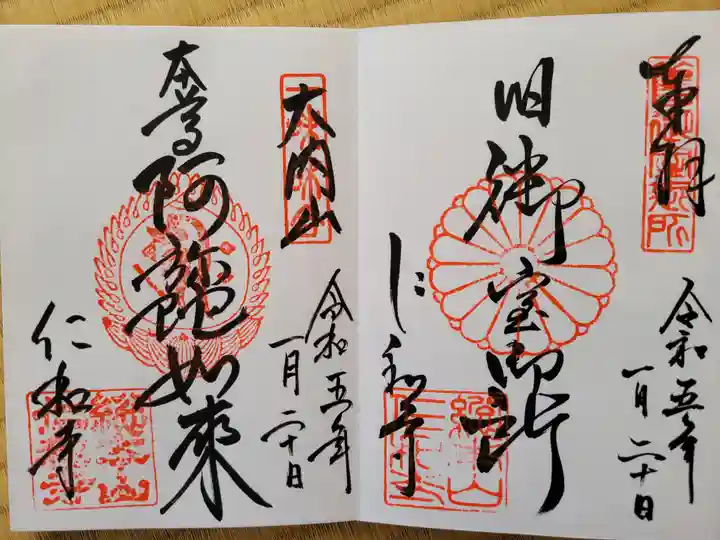 奉拝
旧御室御所
仁和寺
令和五年
一月二十日
大内山
本尊
阿弥陀如来
仁和寺
令和五年
一月二十日